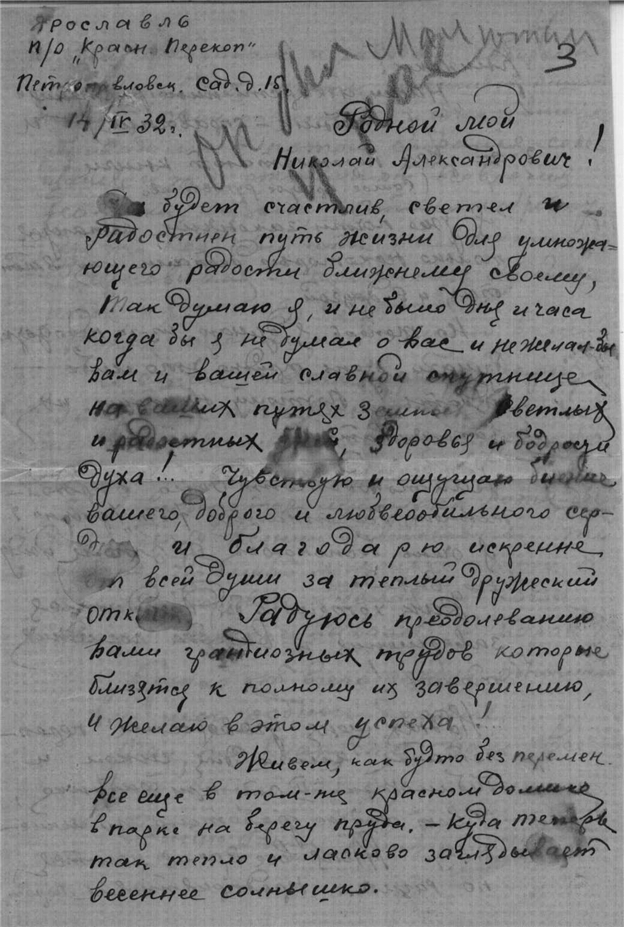 Ярославль
п/о "Красн. Перекоп"
Петропавловск. сад. д. 15.
14/IV 32 г.
3
Родной мой
Николай Александрович!
Да будет счастлив, светел и
радостнен путь жизни для умножа=
ющего радости ближнему своему,
Так думаю я, и не было дня и часа
когда бы я не думал о вас и не желал-бы
вам и вашей славной спутнице
на ваших путях светлых
и радостных дней, здоровья и бодрости
духа!! Чувствую и ощущаю биение
вашего, доброго и любвеобильного сер-
и благодарю искренне
от всей души за теплый дружеский
отклик. Радуюсь преодолеванию
вами грандиозных трудов которые
близятся к полному их завершению,
и желаю в этом успеха!
Живем, как будто без перемен.
все еще в том-же красном домике
в парке на берегу пруда. – Куда теперь
так тепло и ласково заглядывает
весеннее солнышко.